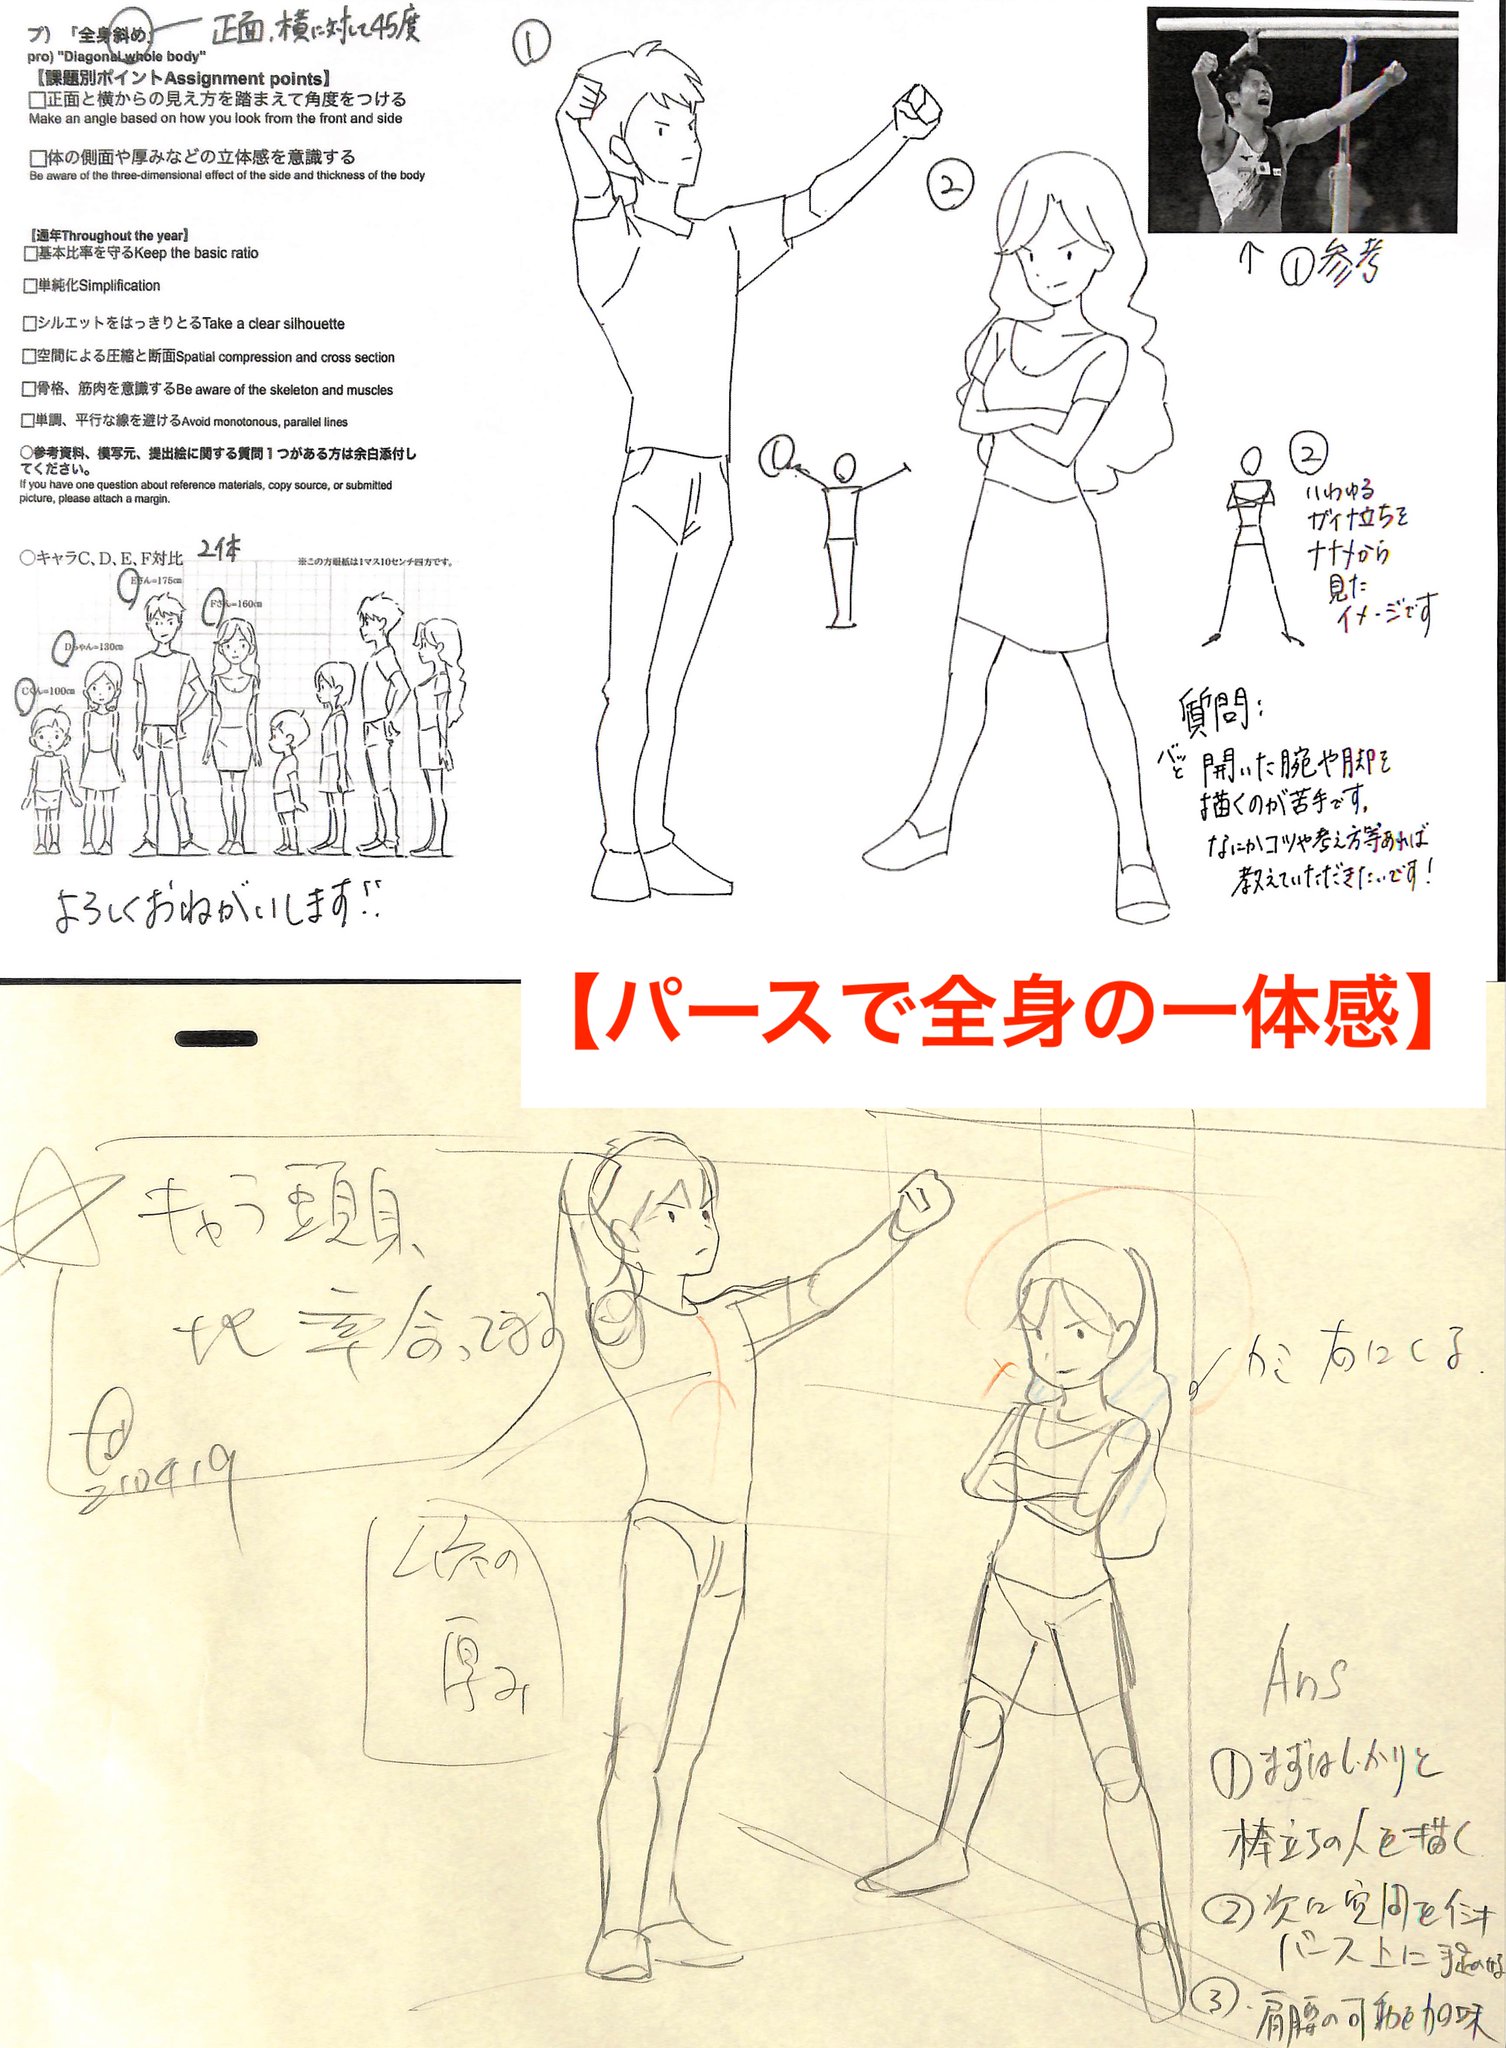 プ）「全身斜め」
正面、横に対して45度
pro) "Diagonal whole body"
【課題別ポイントAssignment points】
□正面と横からの見え方を踏まえて角度をつける
Make an angle based on how you look from the front and side
□体の側面や厚みなどの立体感を意識する
Be aware of the three-dimensional effect of the side and thickness of the body
【通年Throughout the year】
□基本比率を守るKeep the basic ratio
□単純化Simplification
□シルエットをはっきりとるTake a clear silhouette
□空間による圧縮と断面Spatial compression and cross section
□骨格、筋肉を意識するBe aware of the skeleton and muscles
□単調、平行な線を避けるAvoid monotonous, parallel lines
○参考資料、模写元、提出絵に関する質問１つがある方は余白添付し
てください。
If you have one question about reference materials, copy source, or submitted
picture, please attach a margin.
○キャラC、D、E、F対比
2体
※この方眼紙は1マス10センチ四方です。
Eさん=175cm
Fさん=160cm
Dちゃん=130cm
Cくん=100cm
よろしくおねがいします!!
①
②
↑ ①参考
①
②
いわゆる
ガイナ立ちを
ナナメから
見た
イメージです
質問:
バッと開いた腕や脚を
描くのが苦手です。
なにかコツや考え方等あれば
教えていただきたいです!
【パースで全身の一体感】
キャラ頭、
比率合ってます
210419
体の
厚み
Ans
①まずはしっかりと
棒立ちの人を描く
②次に空間を
パース上に手足のせる
③肩腰の可動を加味